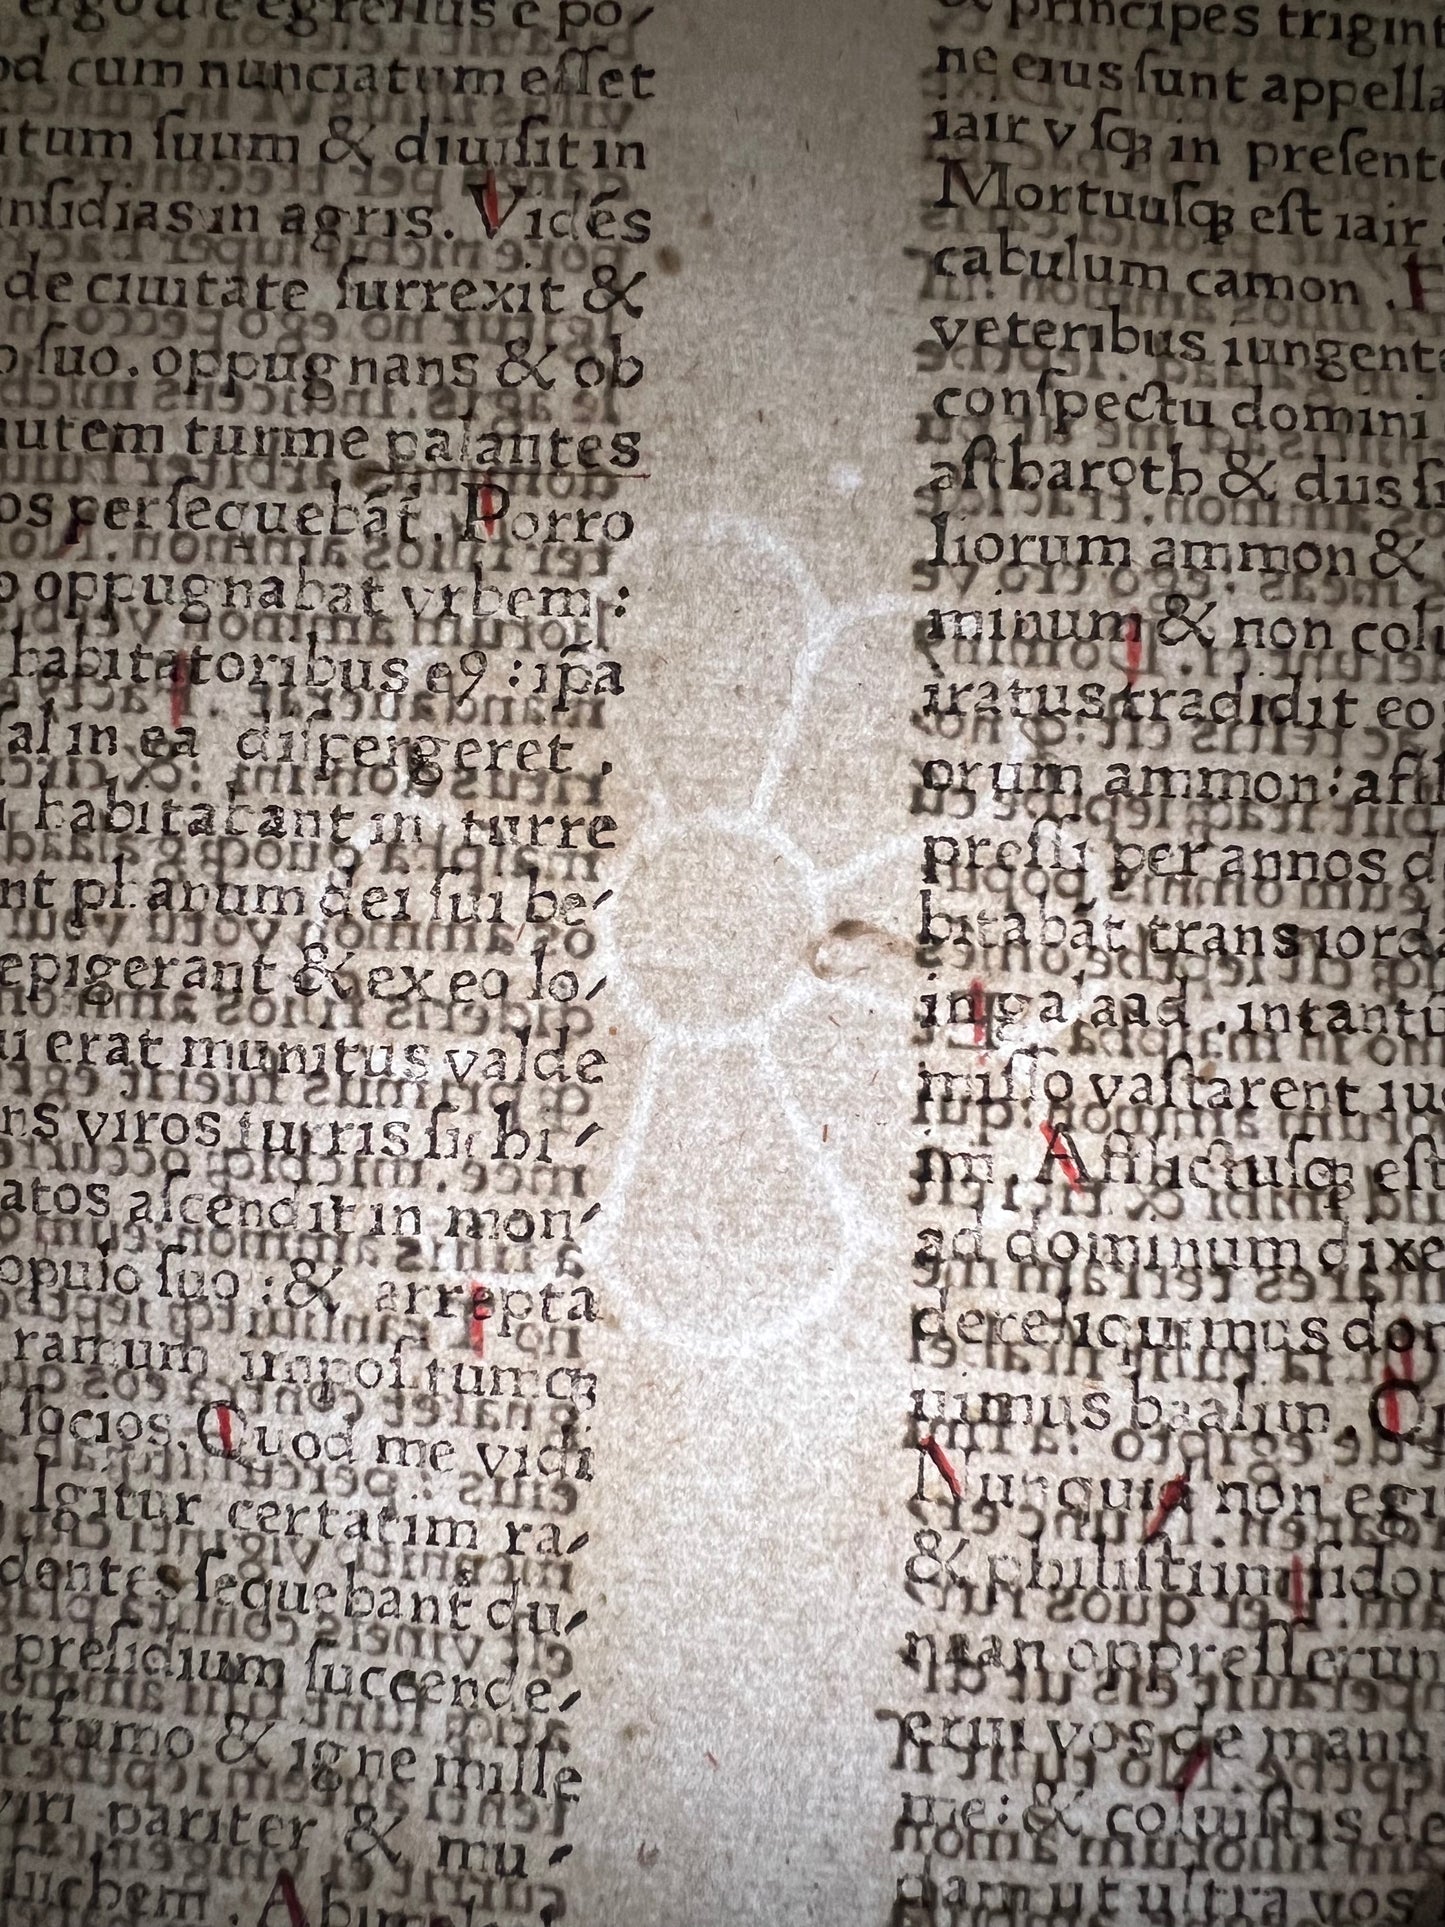 ergo die egressus e po⸗
od cum nunciatum eſſet
itum ſuum & diuiſit in
inſidias in agris. Vidẽs
de ciuitate ſurrexit &
o ſuo. oppugnans & ob
autem turme palantes
os perſequebãt̃. Porro
o oppugnabat vrbem :
habitatoribus eꝯ : ip̃a
ſal in ea diſpergeret .
i habitabant in turre
nt phanum dei ſui be⸗
epigerant & ex eo lo⸗
ui erat munitus valde
ns viros turris ſichi⸗
atos aſcendit in mon⸗
opulo ſuo : & arrepta
ramum impoſitumqꝫ
ſocios. Quod me vidi
Igitur certatim ra⸗
dentes ſequebant̃ du⸗
preſidium ſuccende⸗
t fumo & igne mille
viri pariter & mu⸗
ſichem . Abim
& principes trigint
ne eius ſunt appella
iair vſqꝫ in preſente
Mortuuſqꝫ eſt iair
cabulum camon .
veteribus iungente
conſpectu domini
aſtharoth & diis ſi
liorum ammon &
minum & non colu
iratus tradidit eo
orum ammon: affl
preſſi per annos d
bitabãt trans iorda
in galaad . intantũ
miſſo vaſtarent iud
im . Afflictuſqꝫ eſt
ad dominum dixe
dereliquimus dom
uimus baalim . Q
Nunquid non egi
& philiſtiim ſidon
naan oppreſſerun
erui vos de manu
me: & coluiſtis de
dam ut ultra vos